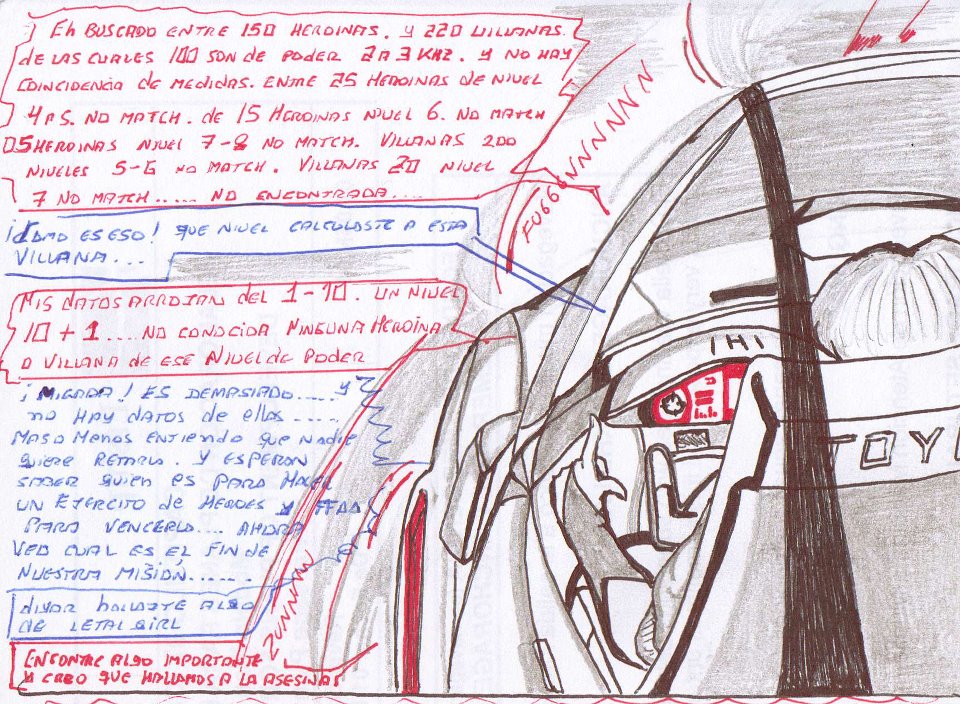 EH BUSCADO ENTRE 150 HEROINAS. Y 220 VILLANAS.
DE LAS CUALES 100 SON DE PODER 2 A 3 KHZ. Y NO HAY
COINCIDENCIA DE MEDIDAS. ENTRE 25 HEROINAS DE NIVEL
4 A 5. NO MATCH. DE 15 HEROINAS NIVEL 6. NO MATCH
05 HEROINAS NIVEL 7-8 NO MATCH. VILLANAS 200
NIVELES 5-6 NO MATCH. VILLANAS 20 NIVEL
7 NO MATCH..... NO ENCONTRADA....
¡COMO ES ESO! QUE NIVEL CALCULASTE A ESTA
VILLANA...
MIS DATOS ARROJAN DEL 1-10. UN NIVEL
10 + 1.... NO CONOCIDA NINGUNA HEROINA
O VILLANA DE ESE NIVEL DE PODER
¡MIGADA! ES DEMASIADO..... Y
NO HAY DATOS DE ELLOS....
MAS O MENOS ENTIENDO QUE NADIE
QUIERE RETARLO. Y ESPERAN
SABER QUIEN ES PARA HACER
UN EJERCITO DE HEROES Y FFAA
PARA VENCERLO.... AHORA
VEO CUAL ES EL FIN DE
NUESTRA MISIÓN......
HALLASTE ALGO
DE LETAL GIRL
ENCONTRE ALGO IMPORTANTE
Y CREO QUE HALLAMOS A LA ASESINAS
FUGGGNNNNNN
ZUNNNNN
IHI
TOYO